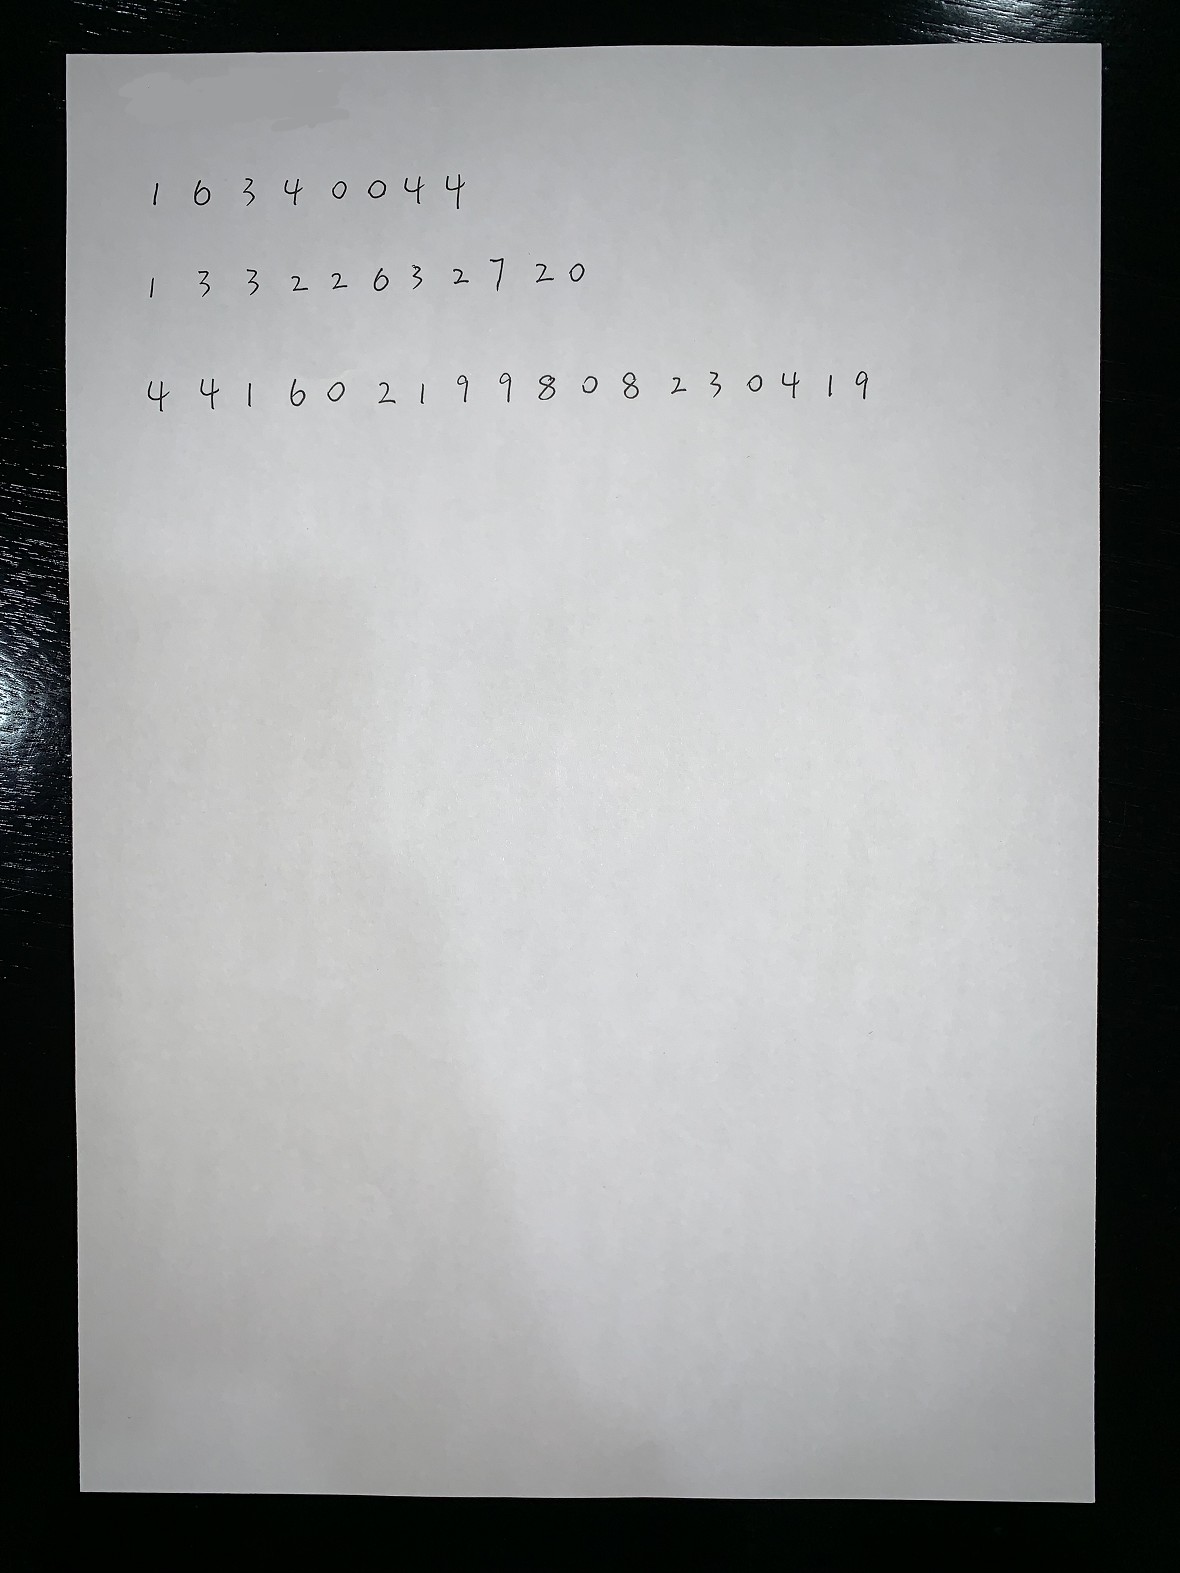 1 6 3 4 0 0 4 4
1 3 3 2 2 6 3 2 7 2 0
4 4 1 6 0 2 1 9 9 8 0 8 2 3 0 4 1 9